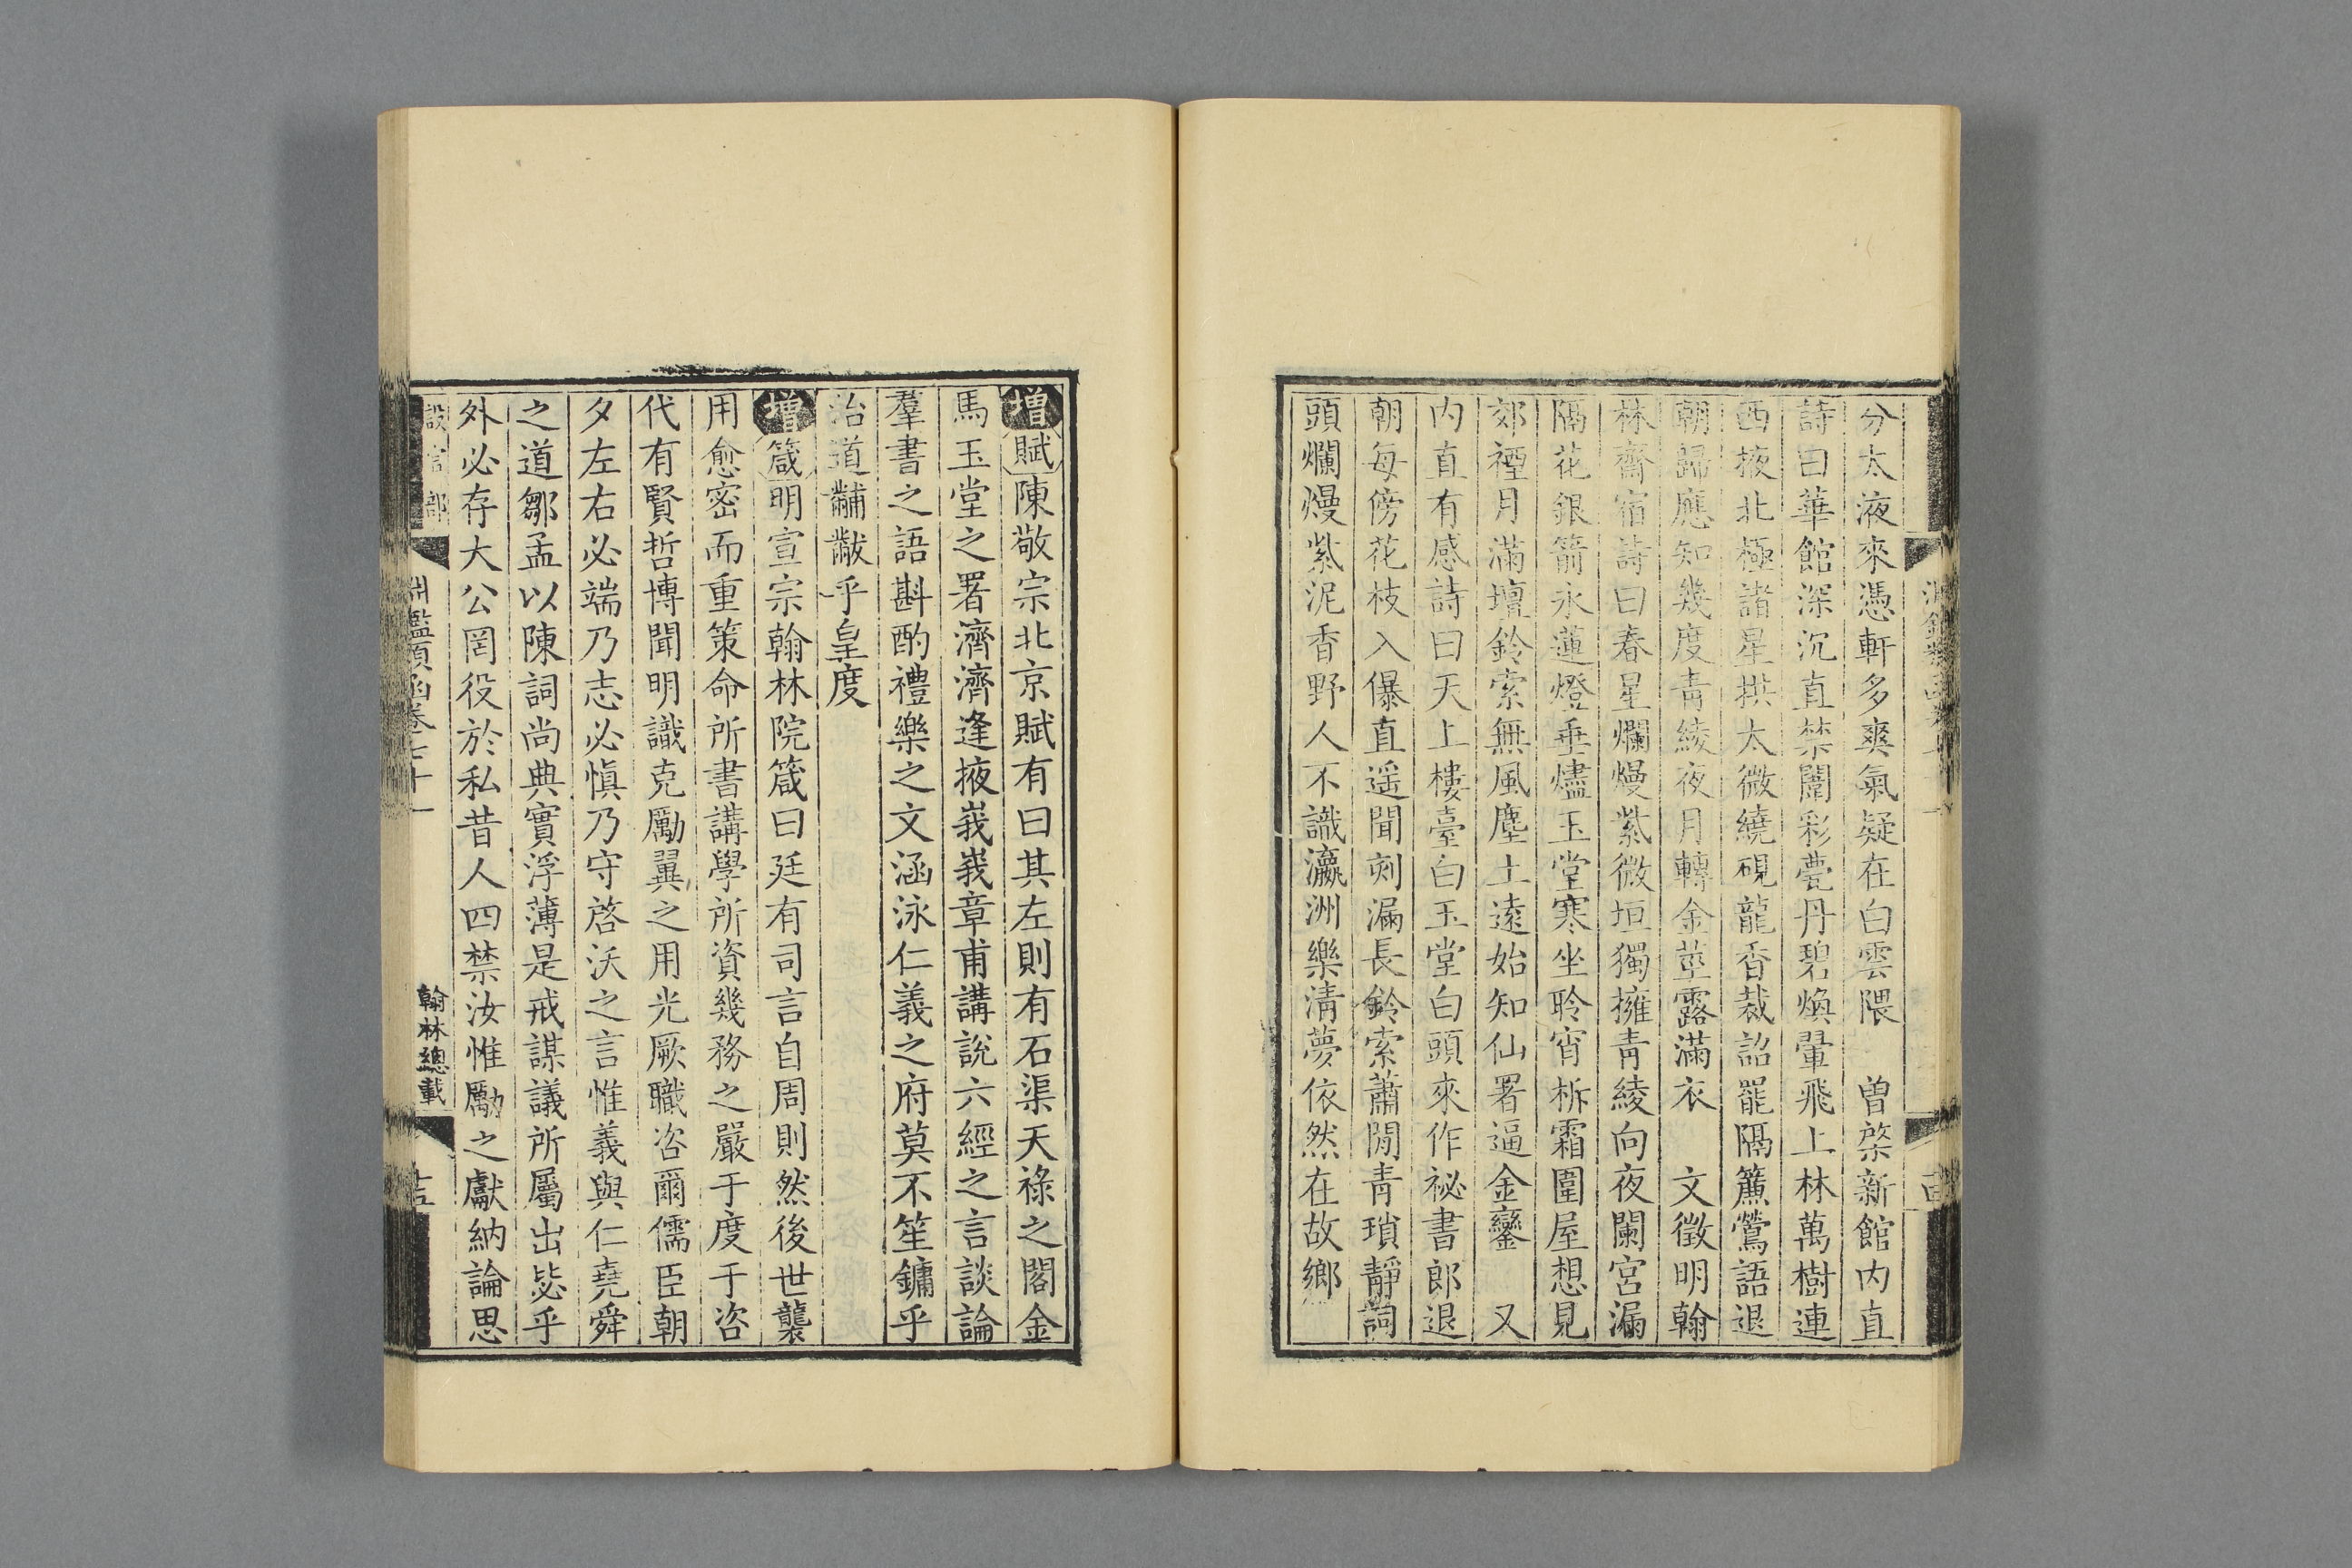 分太液來憑軒多爽氣疑在白雲隈　曾棨新館內直
詩曰華館深沉直禁闈彩甍丹碧煥翬飛上林萬樹連
西掖北極諸星拱太微繞硯龍香裁詔罷隔簾鶯語退
朝歸應知幾度青綾夜月轉金莖露滿衣　文徵明翰
林齋宿詩曰春星爛熳紫微垣獨擁青綾向夜闌宮漏
隔花銀箭永蓮燈垂燼玉堂寒坐聆宵柝霜圍屋想見
郊禋月滿壇鈴索無風塵土遠始知仙署逼金鑾　又
內直有感詩曰天上樓臺白玉堂白頭來作祕書郎退
朝每傍花枝入儤直遥聞刻漏長鈴索蕭閒青瑣靜詞
頭爛熳紫泥香野人不識瀛洲樂清夢依然在故鄉
增賦陳敬宗北京賦有曰其左則有石渠天祿之閣金
馬玉堂之署濟濟逢掖峩峩章甫講說六經之言談論
羣書之語斟酌禮樂之文涵泳仁義之府莫不笙鏞乎
治道黼黻乎皇度
增箴明宣宗翰林院箴曰廷有司言自周則然後世襲
用愈密而重策命所書講學所資幾務之嚴于度于咨
代有賢哲博聞明識克勵翼之用光厥職咨爾儒臣朝
夕左右必端乃志必慎乃守啓沃之言惟義與仁堯舜
之道鄒孟以陳詞尚典實浮薄是戒謀議所屬出毖乎
外必存大公罔役於私昔人四禁汝惟勵之獻納論思
設官部
淵鑑類函卷七十一
翰林總載
十五